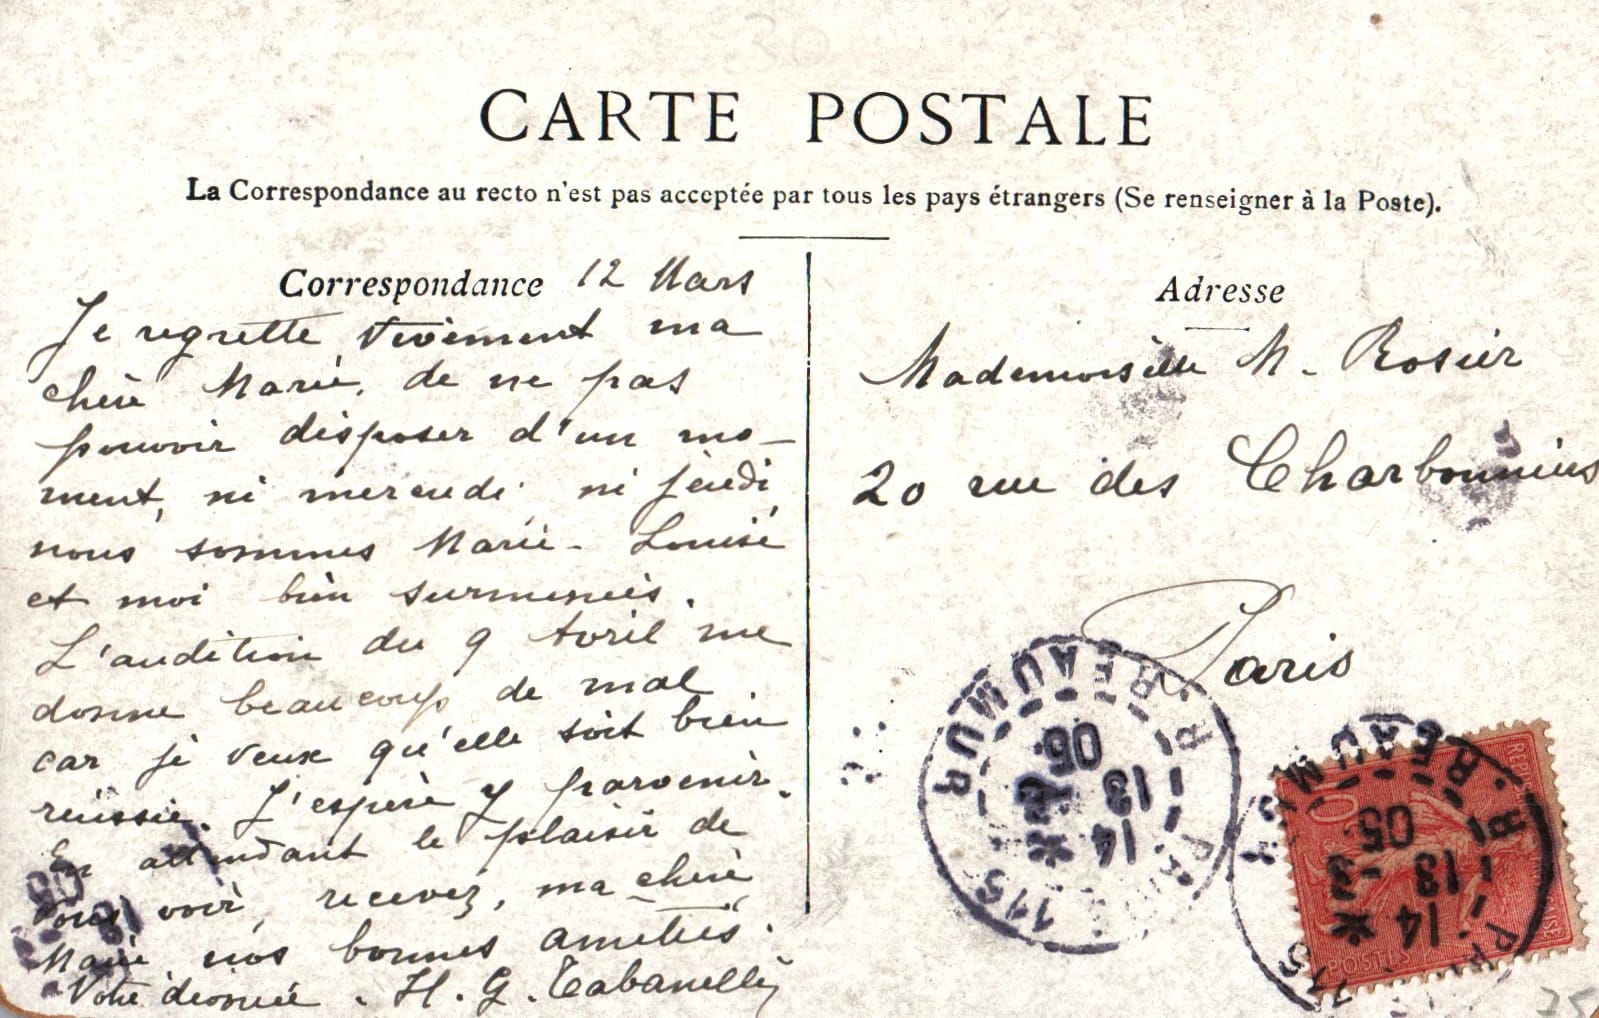 CARTE POSTALE
La Correspondance au recto n'est pas acceptée par tous les pays étrangers (Se renseigner à la Poste).
Correspondance 12 Mars
Je regrette vivement ma
chère Marie, de ne pas
pouvoir disposer d'un mo-
ment, ni mercredi ni jeudi
nous sommes Marie-Louise
et moi bien surmenées.
L'audition du 9 Avril me
donne beaucoup de mal
car je veux qu'elle soit bien
réussie. J'espère y parvenir.
En attendant le plaisir de
vous voir, recevez, ma chère
Marie nos bonnes amitiés.
Votre dévouée. H. G. Tabanelli
Adresse
Mademoiselle M. Rosier
20 rue des Charbonniers
Paris
PARIS 115 R. REAUMUR
14
13 -3
05
R. REAUMUR
14
13 -3
05
10
POSTES
25